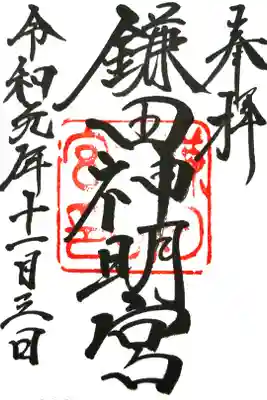 奉拝
鎌田神明宮
令和元年十一月三日